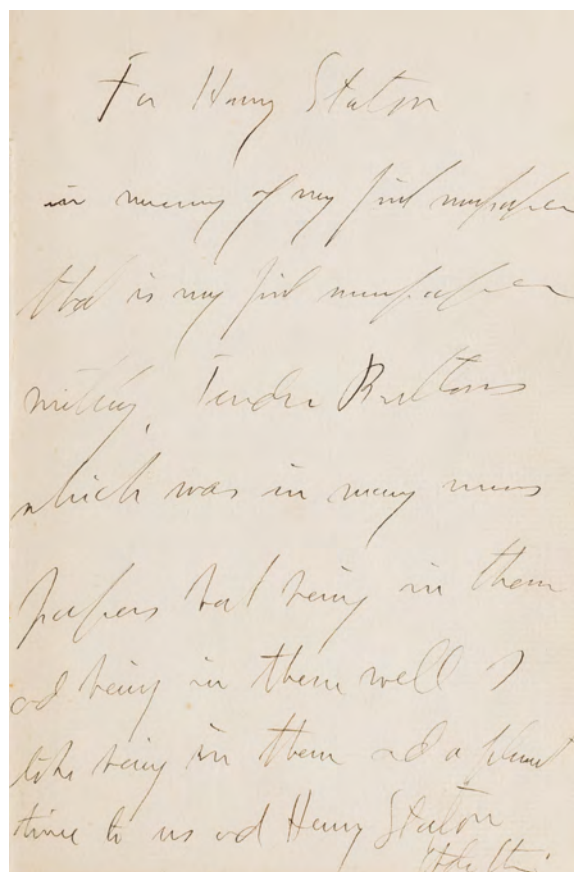 For Harry Staton
in memory of my first newspaper
that is my first newspaper
writing, Tender Buttons
which was in many news
papers but being in them
and being in them well I
like being in them and a pleasant
time to us and Harry Staton